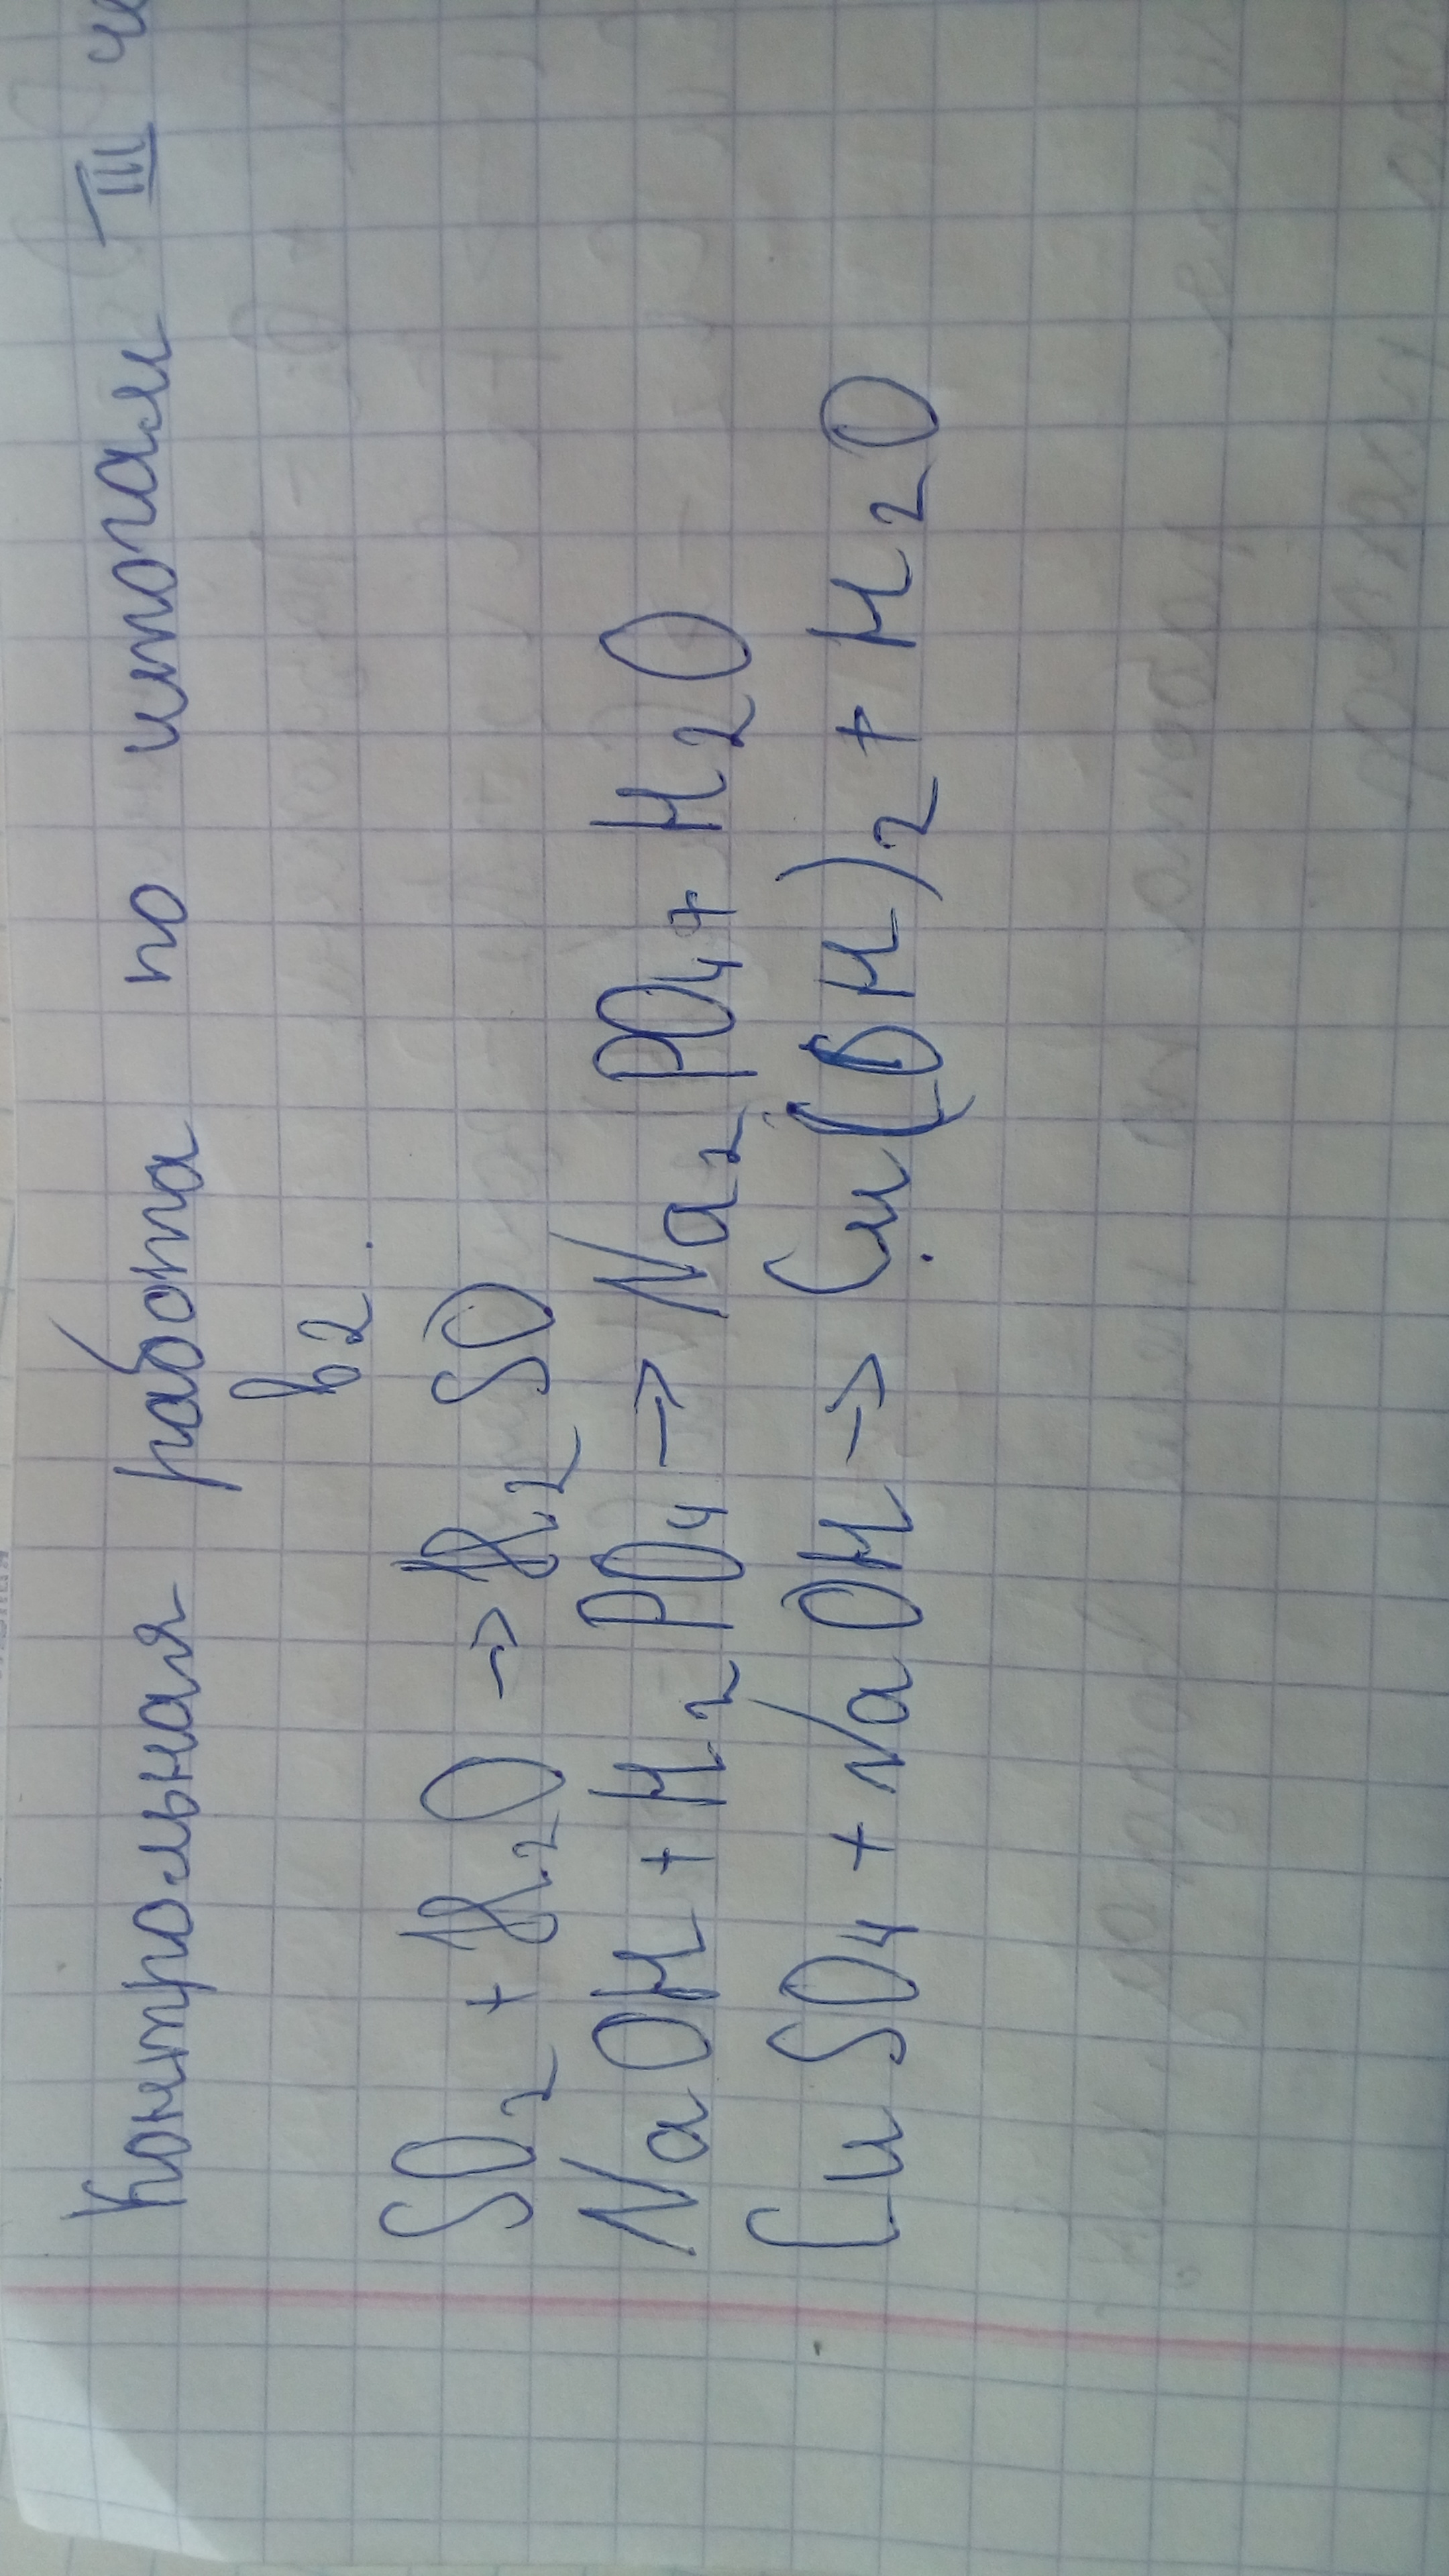 Контрольная работа по итогам III че
в2.
SO₂ + H₂O → H₂SO
NaOH + H₂PO₄ → Na₂PO₄ + H₂O
CuSO₄ + NaOH → Cu(OH)₂ + H₂O